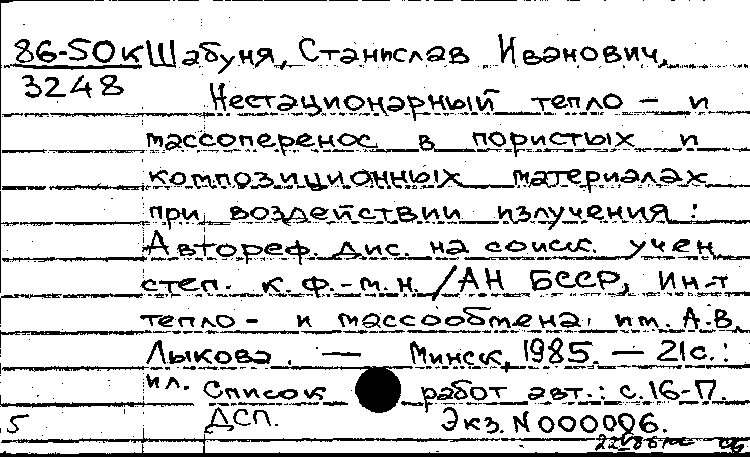 86-50к Шабуня, Станислав Иванович,
3248
Нестационарный тепло- и
массоперенос в пористых и
композиционных материалах
при воздействии излучения:
Автореф. дис. на соиск. учен
степ. к. ф.-м. н. / АН БССР, Ин-т
тепло- и массообмена им. А.В.
Лыкова. — Минск, 1985. — 21с.:
ил. Список работ авт.: с.16-17.
5 ДСП. Экз. N 000006.